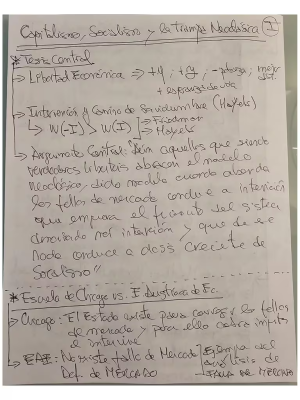 Capitalismo, Socialismo y la trampa Neoclásica ①
* Tesis Central
↳ Libertad Económica ⇒ +y, +cy, -pobreza, mejor dist.
+ esperanza de vida
↳ Intervención y Camino de Servidumbre (Hayek)
↳ W(-I) > W(I) → Friedman
→ Hayek
↳ Argumento Central: "Son aquellos que siendo
verdaderos liberales abrazan el modelo
Neoclásico, dicho modelo cuando aborda
los fallos de mercado conduce a intervención
que empeora el del sistema
derivando por intervención y que de ese
modo conduce a dosis creciente de
Socialismo"
* Escuela de Chicago vs. I de Ec.
↳ Chicago: El Estado existe para corregir los fallos
de mercado y para ello cobra impuestos
e interviene
↳ EAE: No existe fallo de Mercado
Def. de MERCADO
del
análisis de
FALLA DE MERCADO